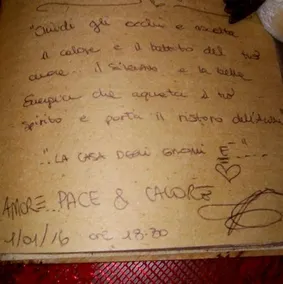 "Chiudi gli occhi e ascolta
il calore e il battito del tuo
cuore... il silenzio e la bella
che aqueta il tuo
spirito e porta il ristoro dell'
".. LA CASA DEGLI GNOMI E' "......
AMORE.. PACE & CALORE
1/01/16 ore 13:30